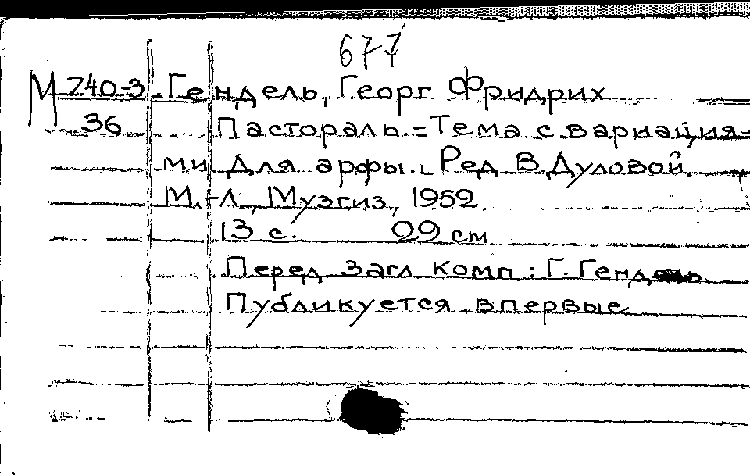 677
М 240-3 Гендель, Георг Фридрих
36 Пастораль = Тема с вариация-
ми Для арфы. Ред В. Дуловой.
М.-Л., Музгиз, 1952.
13 с. 29 см
Перед загл комп: Г. Гендель
Публикуется впервые